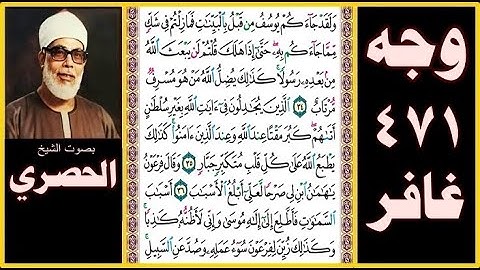 وَلَقَدْ جَآءَكُمْ يُوسُفُ مِن قَبْلُ بِٱلْبَيِّنَٰتِ فَمَا زِلْتُمْ فِى شَكٍّ
مِّمَّا جَآءَكُم بِهِۦ حَتَّىٰٓ إِذَا هَلَكَ قُلْتُمْ لَن يَبْعَثَ ٱللَّهُ
مِنۢ بَعْدِهِۦ رَسُولًا كَذَٰلِكَ يُضِلُّ ٱللَّهُ مَنْ هُوَ مُسْرِفٌ
مُّرْتَابٌ ٣٤ ٱلَّذِينَ يُجَٰدِلُونَ فِىٓ ءَايَٰتِ ٱللَّهِ بِغَيْرِ سُلْطَٰنٍ
أَتَىٰهُمْ كَبُرَ مَقْتًا عِندَ ٱللَّهِ وَعِندَ ٱلَّذِينَ ءَامَنُوا۟ كَذَٰلِكَ
يَطْبَعُ ٱللَّهُ عَلَىٰ كُلِّ قَلْبِ مُتَكَبِّرٍ جَبَّارٍ ٣٥ وَقَالَ فِرْعَوْنُ
يَٰهَٰمَٰنُ ٱبْنِ لِى صَرْحًا لَّعَلِّىٓ أَبْلُغُ ٱلْأَسْبَٰبَ ٣٦ أَسْبَٰبَ
ٱلسَّمَٰوَٰتِ فَأَطَّلِعَ إِلَىٰٓ إِلَٰهِ مُوسَىٰ وَإِنِّى لَأَظُنُّهُۥ كَٰذِبًا
وَكَذَٰلِكَ زُيِّنَ لِفِرْعَوْنَ سُوٓءُ عَمَلِهِۦ وَصُدَّ عَنِ ٱلسَّبِيلِ
وجه
٤٧١
غافر
بصوت الشيخ
الحصري